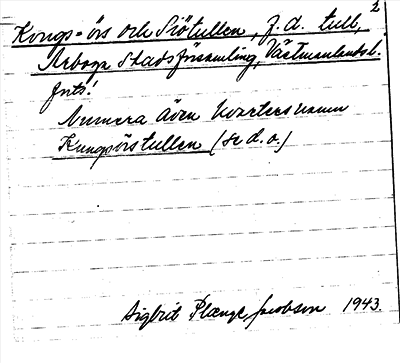 2
Kongs-örs och Siötullen, f.d. tull,
Arboga Stadsförsamling, Västmanlands l.
Fnts!
Numera även kvartersnamn
Kungsörstullen (se d.o.)
Sigbrit Plænge Jacobson 1943.